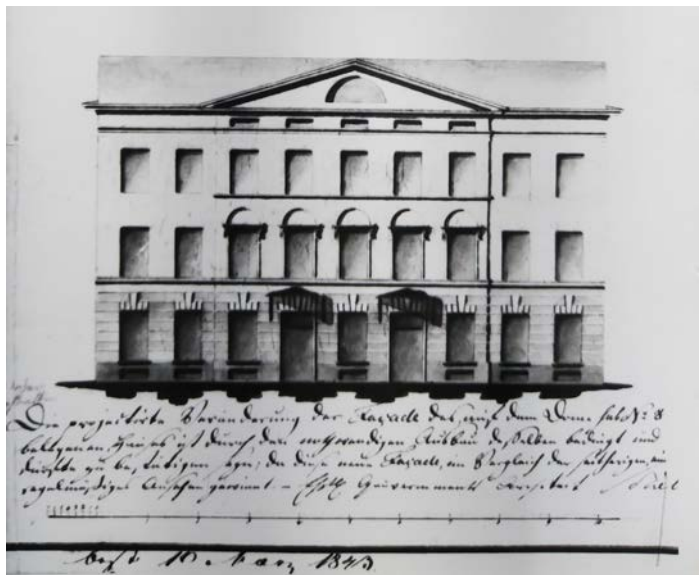 Die projectirte Veränderung der Façade des, auf dem Dome sub № 8
belegenen Hauses ist durch den nothwendigen Ausbau desselben bedingt und
dürfte zu bestätigen seyn, da diese neue Façade, im Vergleich der seitherigen, ein
regelmäßiges Ansehen gewinnt. Gouvernements Architect
März 1843